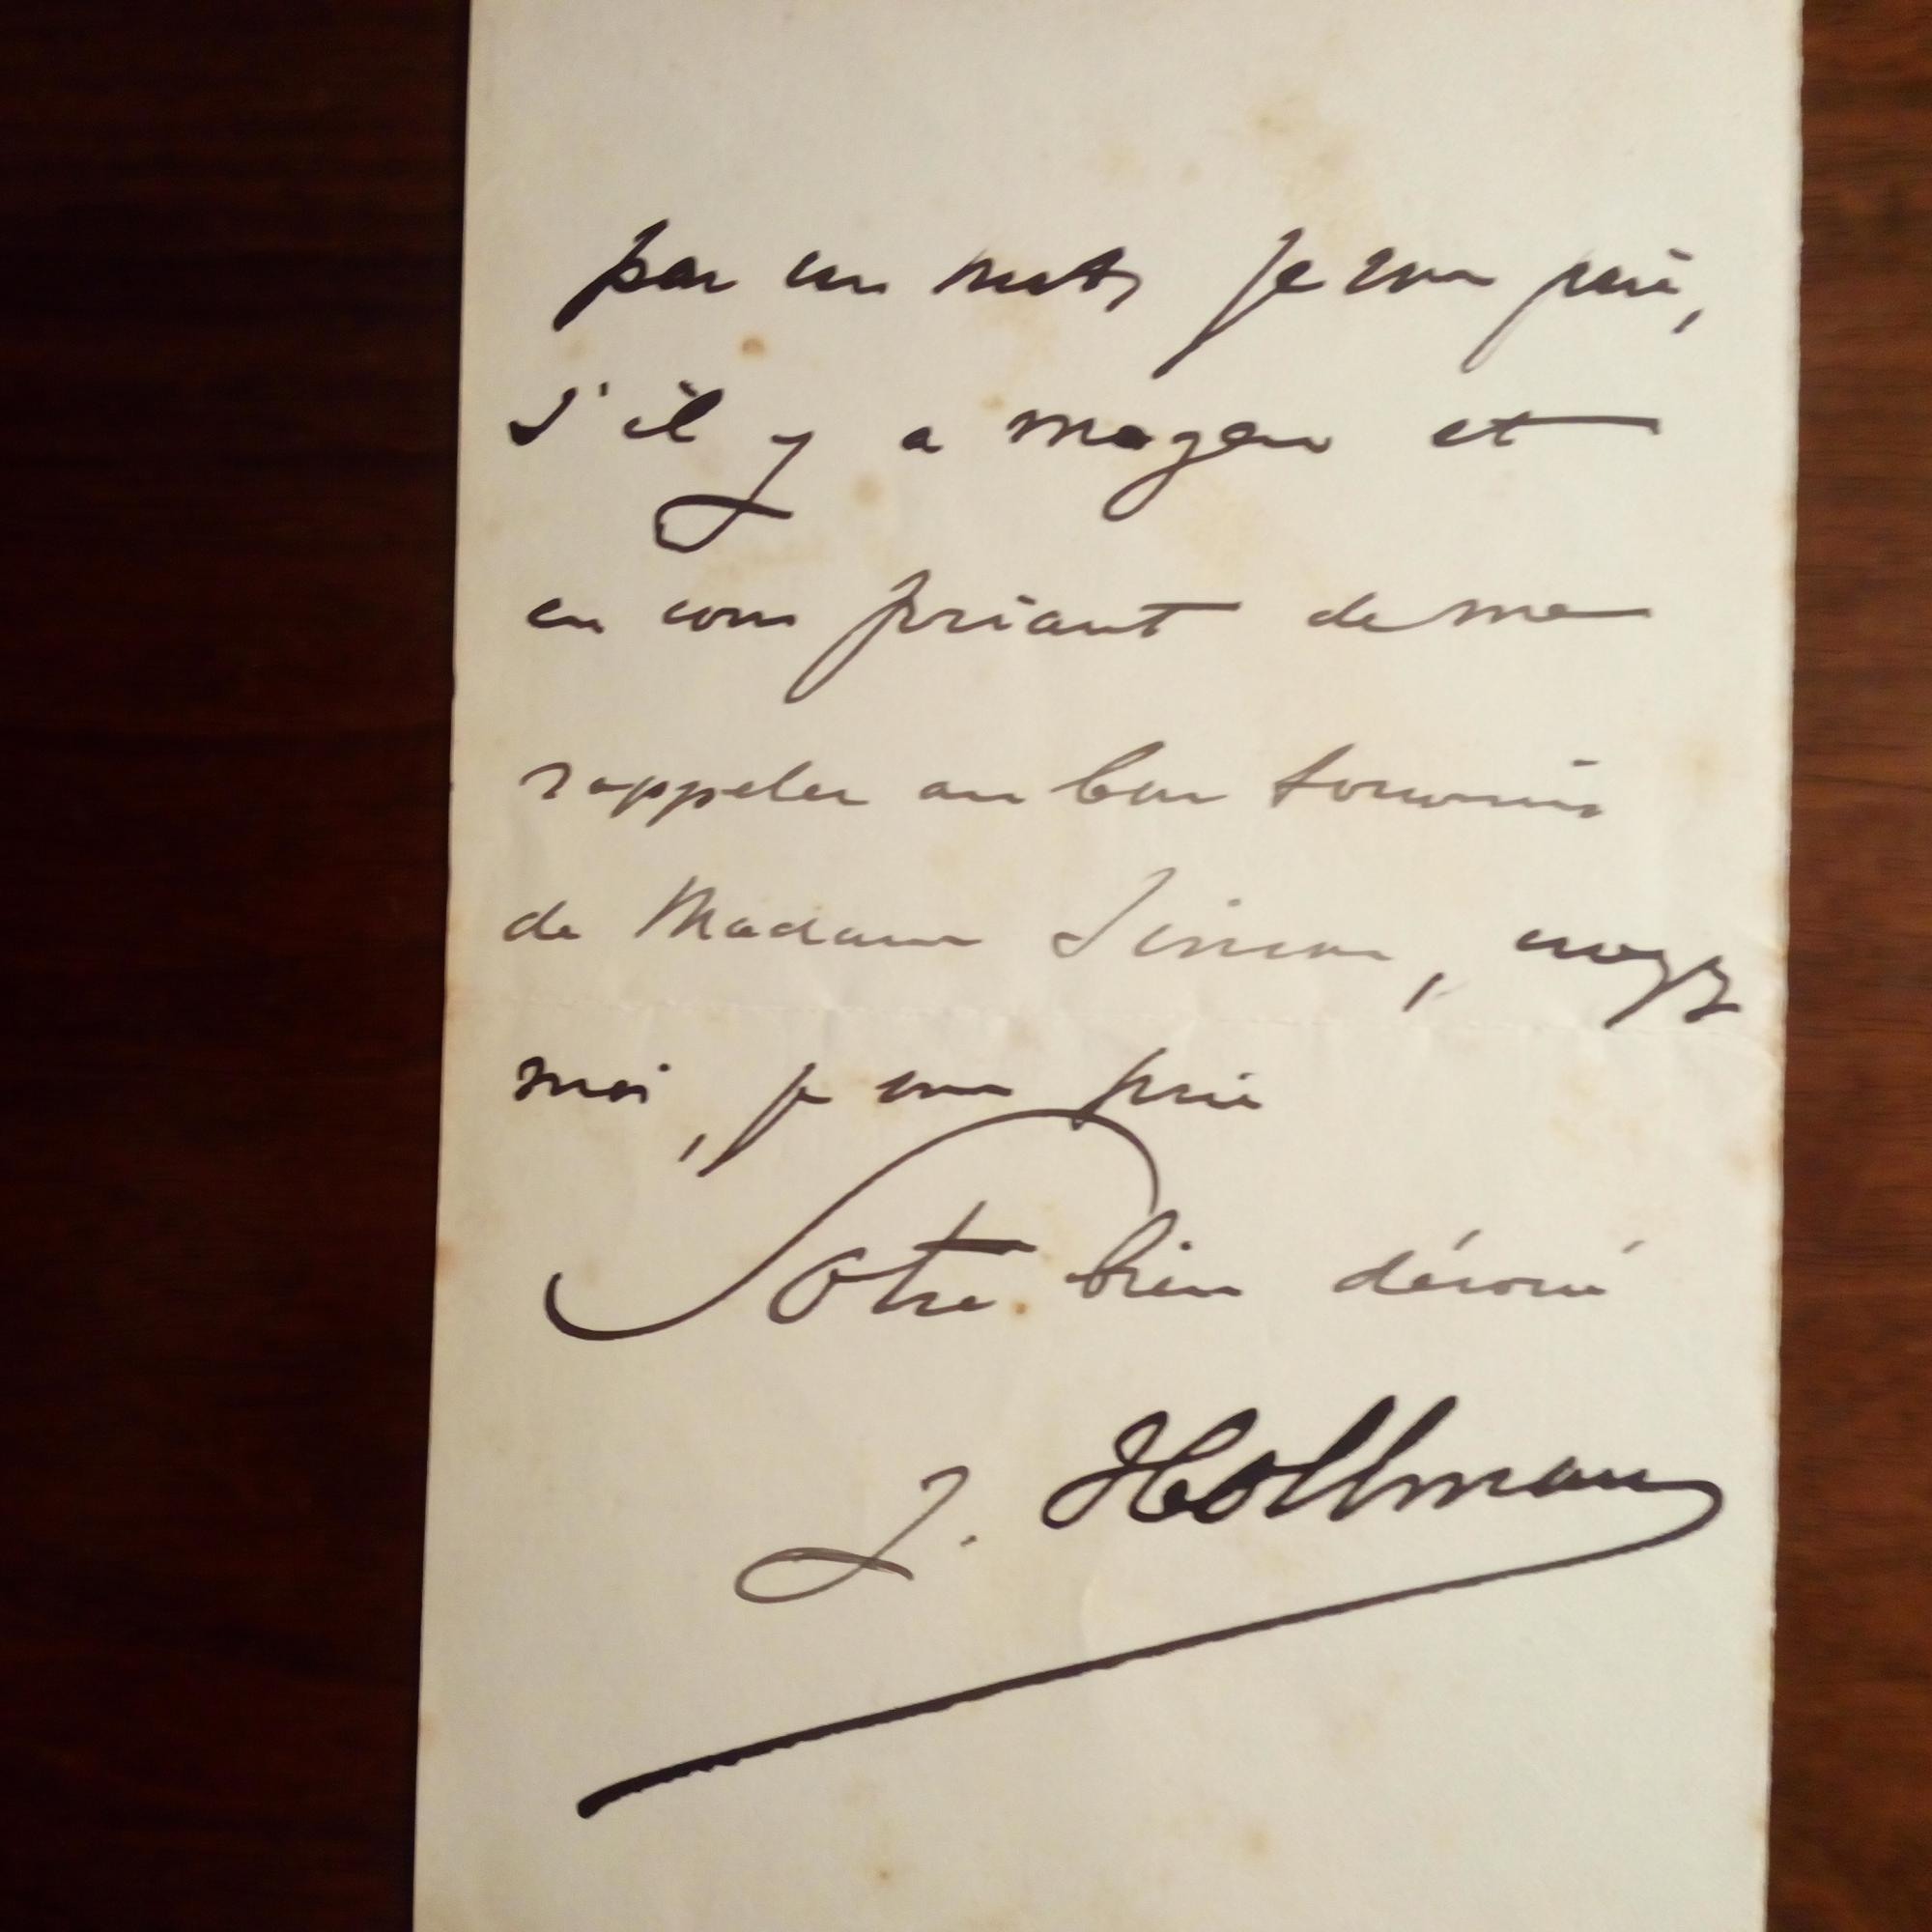 par un mot, je vous prie,
s'il y a moyen et
en vous priant de me
rappeler au bon souvenir
de Madame Simon, croyez
moi, je vous prie
Votre bien dévoué
J. Hollman